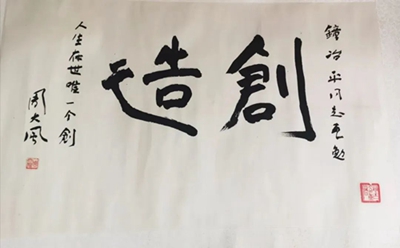 鐘冶平同志互勉
創造
人生在世唯一个創
周大风